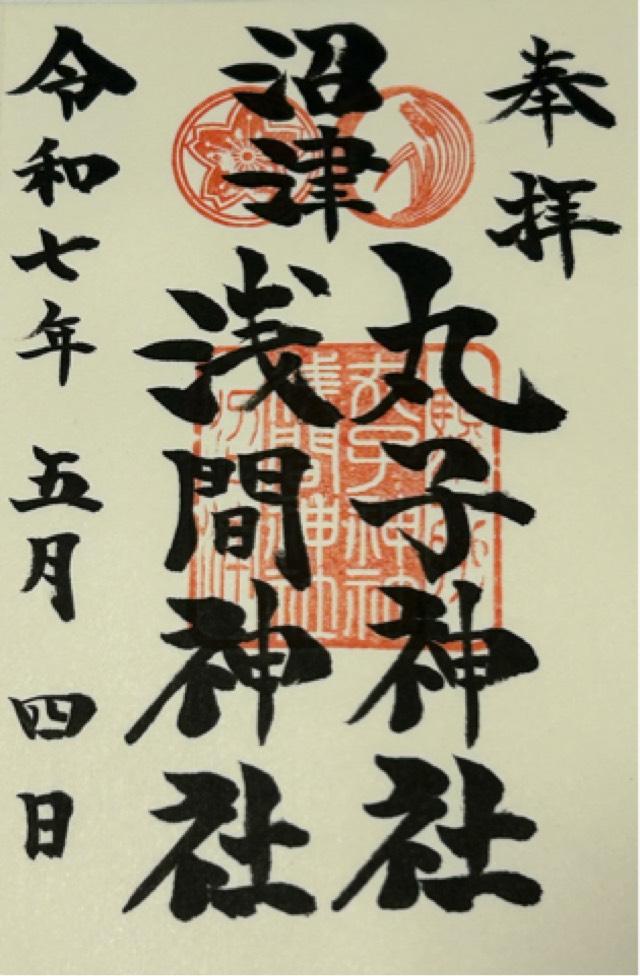 奉拝
沼津
丸子神社
浅間神社
令和七年 五月 四日